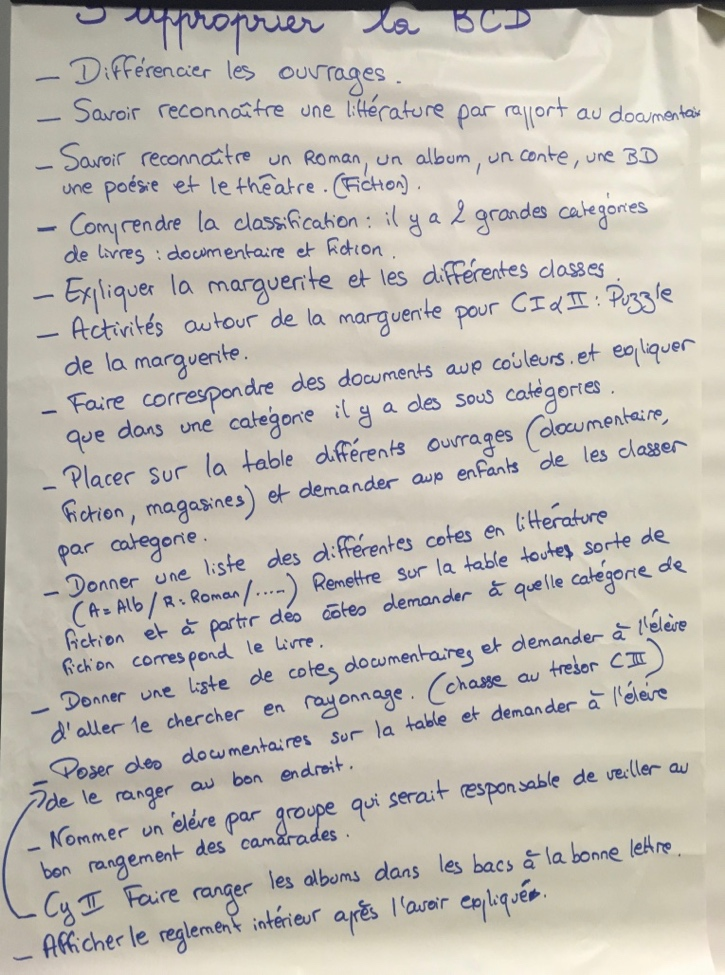 S'approprier la BCD
- Différencier les ouvrages.
- Savoir reconnaître une littérature par rapport au documentaire
- Savoir reconnaître un Roman, un album, un conte, une BD
une poésie et le théatre. (Fiction).
- Comprendre la classification : il y a 2 grandes categories
de livres : documentaire et Fiction.
- Expliquer la marguerite et les différentes classes.
- Activités autour de la marguerite pour CI α II : Puzzle
de la marguerite.
- Faire correspondre des documents aux couleurs. et expliquer
que dans une catégorie il y a des sous catégories.
- Placer sur la table différents ouvrages (documentaire,
Fiction, magasines) et demander aux enfants de les classer
par categorie.
- Donner une liste des différentes cotes en littérature
(A = Alb / R : Roman / .....) Remettre sur la table toutes sorte de
fiction et à partir des côtes demander à quelle catégorie de
fiction correspond le livre.
- Donner une liste de cotes documentaires et demander à l'élève
d'aller le chercher en rayonnage. (chasse au tresor CIII)
- Poser des documentaires sur la table et demander à l'élève
de le ranger au bon endroit.
- Nommer un élève par groupe qui serait responsable de veiller au
bon rangement des camarades.
- Cy II Faire ranger les albums dans les bacs à la bonne lettre.
- Afficher le reglement intérieur après l'avoir expliqué.